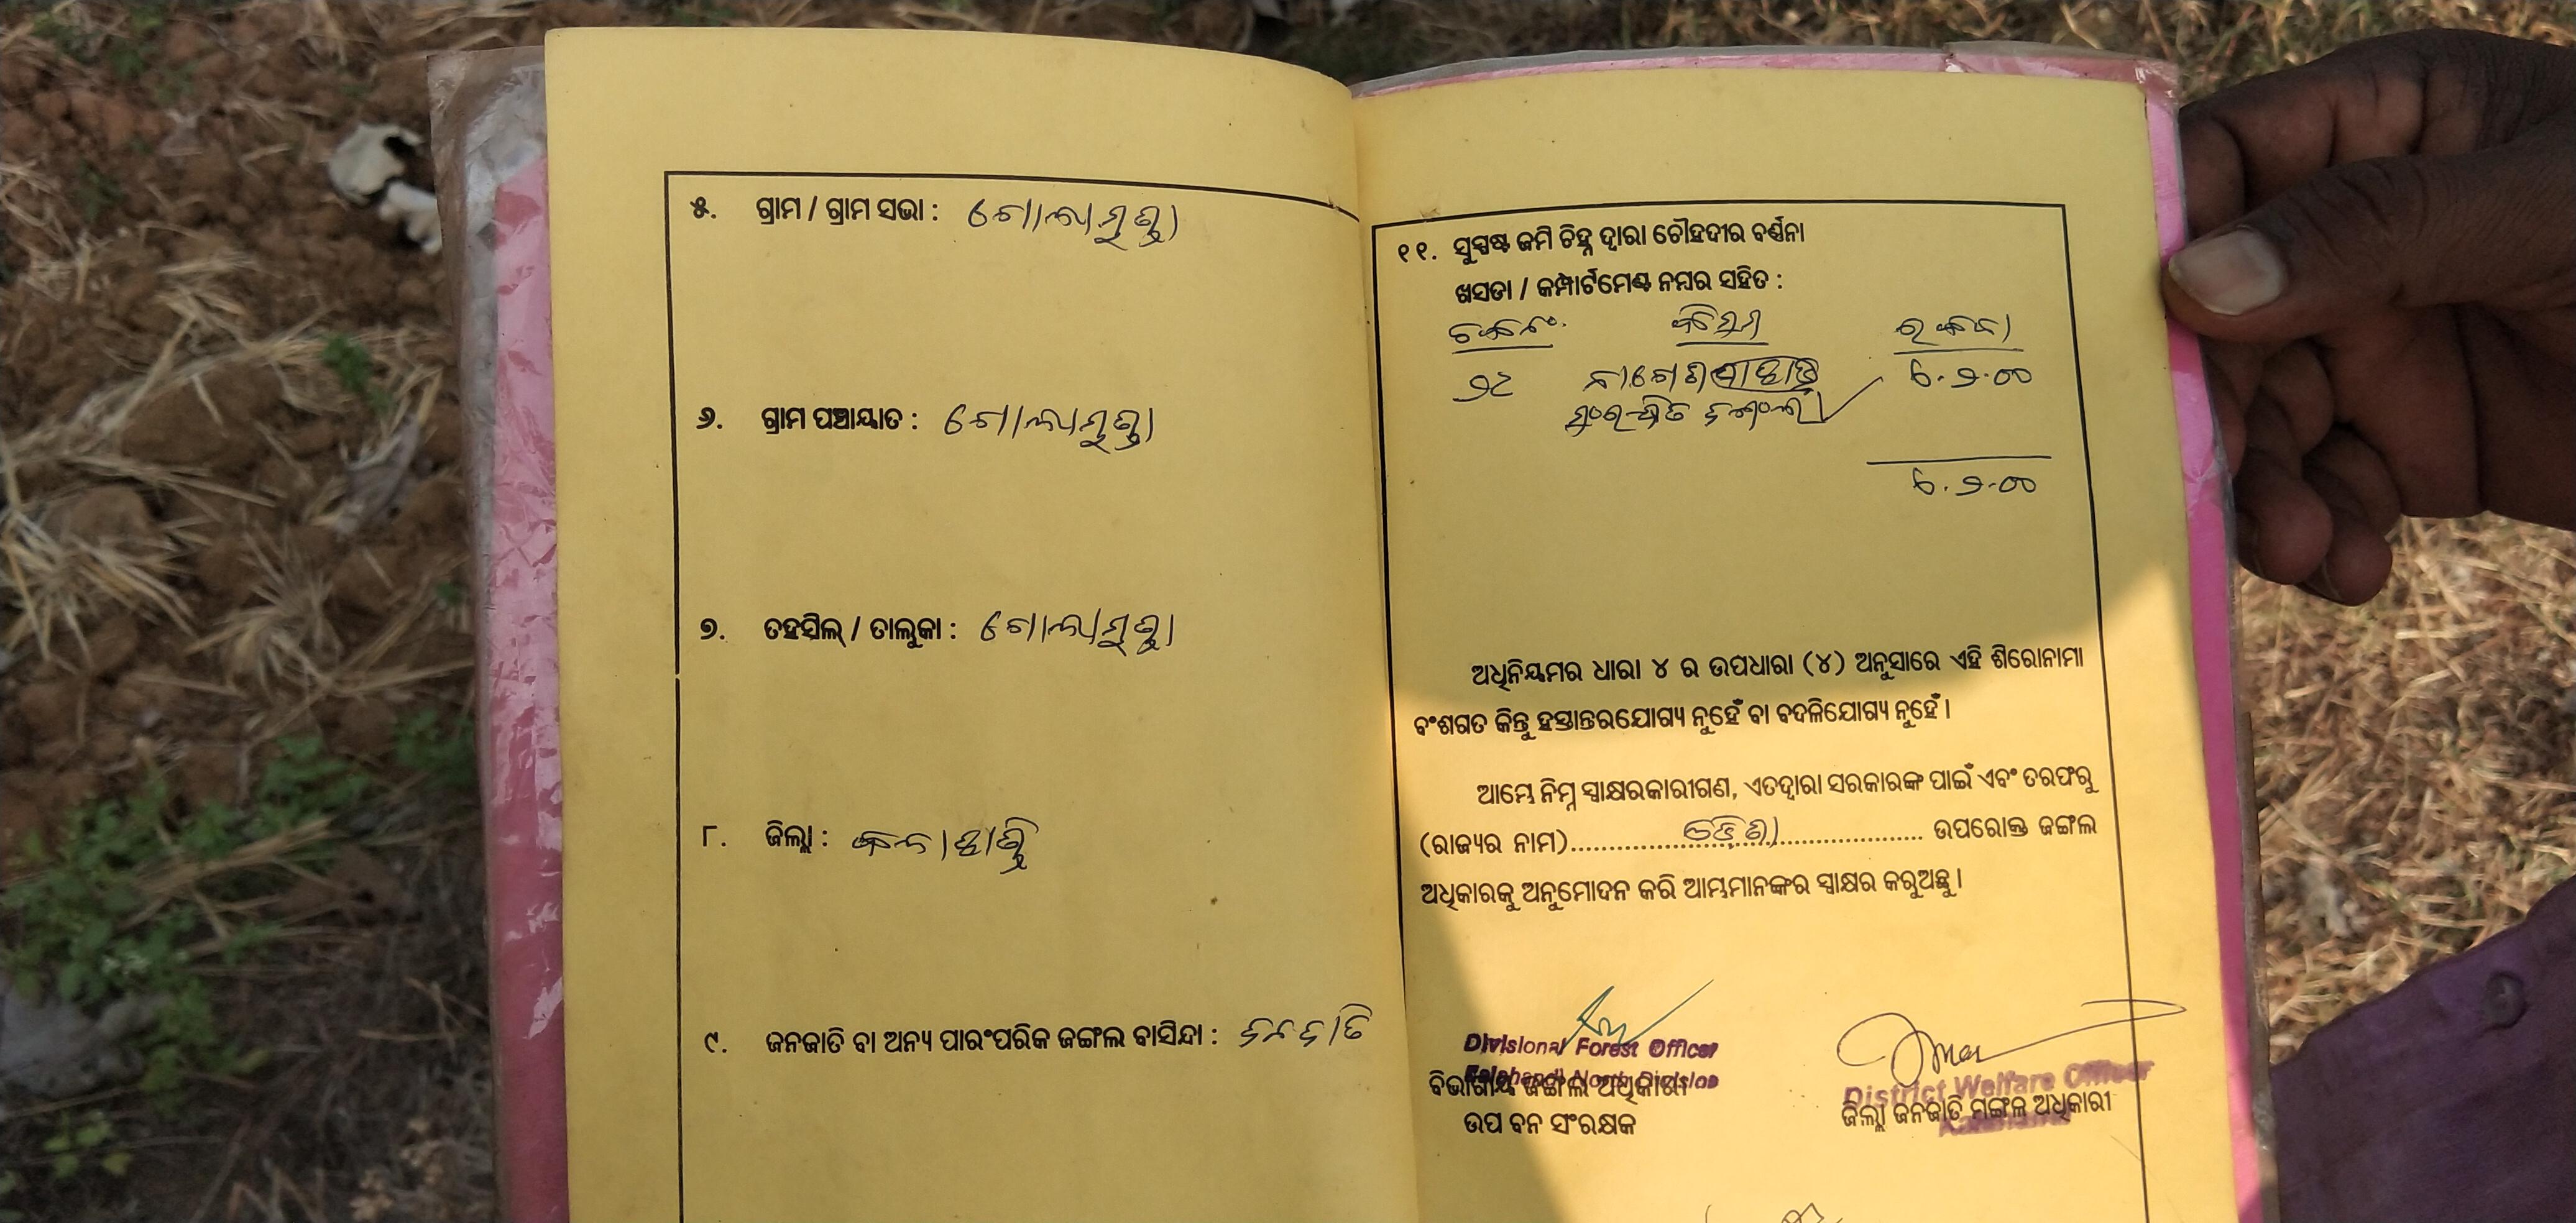 ୫. ଗ୍ରାମ / ଗ୍ରାମ ସଭା : ଗୋଲାମୁଣ୍ଡା
୬. ଗ୍ରାମ ପଞ୍ଚାୟାତ : ଗୋଲାମୁଣ୍ଡା
୭. ତହସିଲ୍ / ତାଲୁକା : ଗୋଲାମୁଣ୍ଡା
୮. ଜିଲ୍ଲା : କଳାହାଣ୍ଡି
୯. ଜନଜାତି ବା ଅନ୍ୟ ପାରଂପରିକ ଜଙ୍ଗଲ ବାସିନ୍ଦା : ଜନଜାତି
୧୧. ସୁସ୍ପଷ୍ଟ ଜମି ଚିହ୍ନ ଦ୍ୱାରା ଚୌହଦୀର ବର୍ଣ୍ଣନା
ଖସଡା / କମ୍ପାର୍ଟମେଣ୍ଟ ନମ୍ବର ସହିତ :
କିସମ ରକବା
୬.୨.୦୦
ସଂରକ୍ଷିତ ଜଙ୍ଗଲ
୬.୨.୦୦
ଅଧିନିୟମର ଧାରା ୪ ର ଉପଧାରା (୪) ଅନୁସାରେ ଏହି ଶିରୋନାମା
ବଂଶଗତ କିନ୍ତୁ ହସ୍ତାନ୍ତରଯୋଗ୍ୟ ନୁହେଁ ବା ବଦଳିଯୋଗ୍ୟ ନୁହେଁ।
ଆମ୍ଭେ ନିମ୍ନ ସ୍ୱାକ୍ଷରକାରୀଗଣ, ଏତଦ୍ୱାରା ସରକାରଙ୍କ ପାଇଁ ଏବଂ ତରଫରୁ
(ରାଜ୍ୟର ନାମ).......ଓଡ଼ିଶା....... ଉପରୋକ୍ତ ଜଙ୍ଗଲ
ଅଧିକାରକୁ ଅନୁମୋଦନ କରି ଆମ୍ଭମାନଙ୍କର ସ୍ୱାକ୍ଷର କରୁଅଛୁ।
Divisional Forest Officer
Kalahandi North Division
ବିଭାଗୀୟ ଜଙ୍ଗଲ ଅଧିକାରୀ
ଉପ ବନ ସଂରକ୍ଷକ
District Welfare Officer
ଜିଲ୍ଲା ଜନଜାତି ମଙ୍ଗଳ ଅଧିକାରୀ